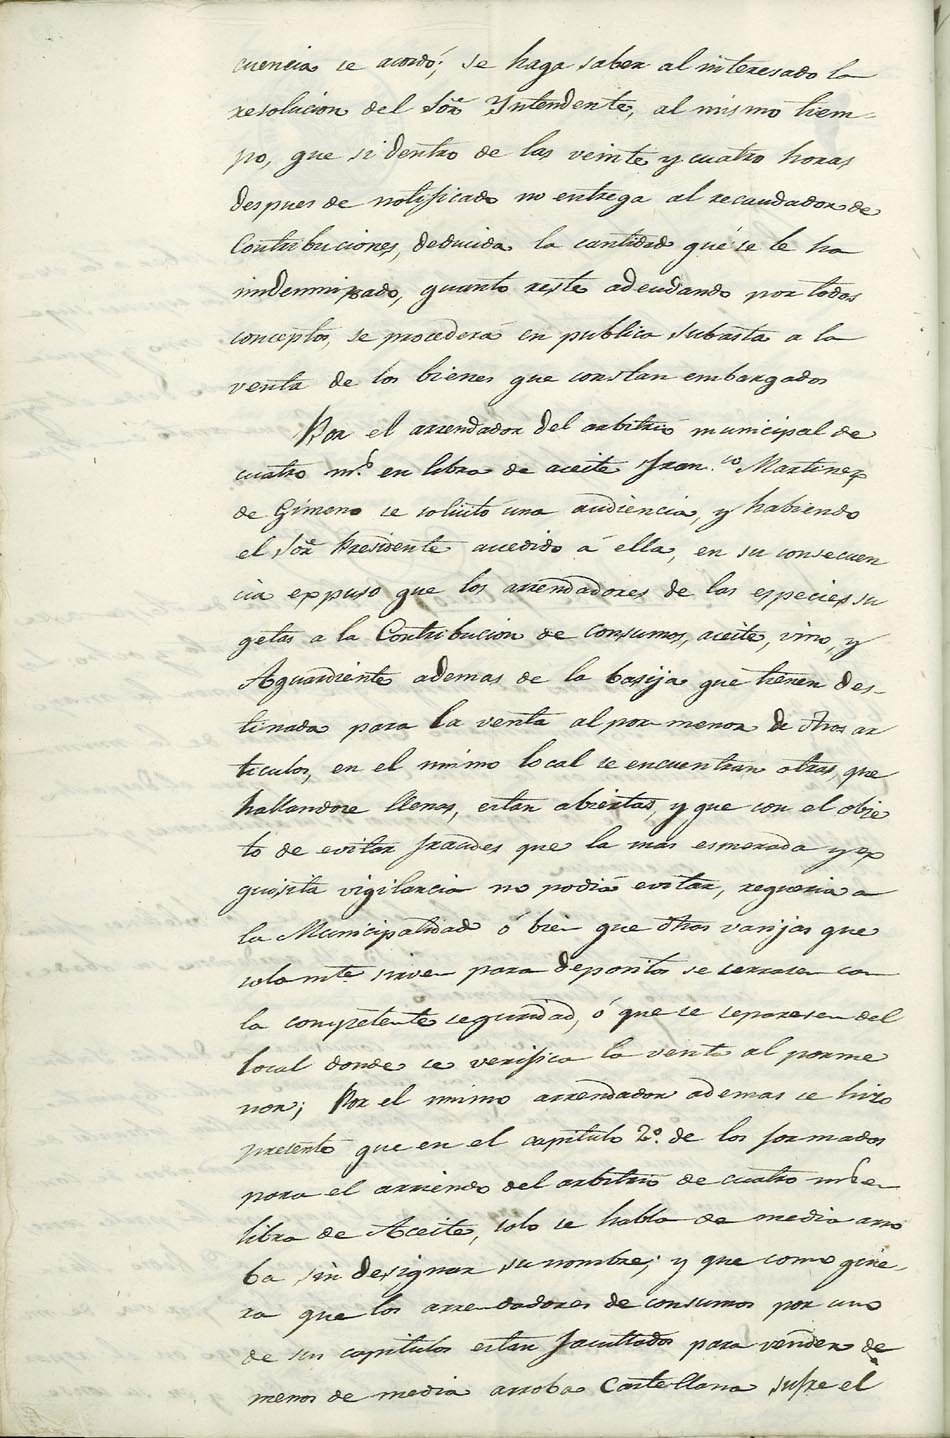 cuencia se acordó; se haga saber al interesado la
resolucion del Sõr Yntendente, al mismo tiem-
po, que si dentro de las veinte y cuatro horas
despues de notificado no entrega al recaudador de
Contribuciones, deducida la cantidad que se le ha
indemnizado, quanto reste adeudando por todos
conceptos, se procederá en publica subasta a la
venta de los bienes que constan embargados
Por el arrendador del arbitrio municipal de
cuatro m.s en libra de aceite Fran.co Martinez
de Gimeno se solicitó una audiencia, y habiendo
el Sõr Presidente accedido á ella, en su consecuen
cia expuso que los arrendadores de las especies su
getas a la Contribucion de consumos, aceite, vino, y
Aguardiente ademas de la basija que tienen des-
tinada para la venta al por menor de otros ar
ticulos, en el mismo local se encuentran otras, que
hallandose llenas, estan abiertas, y que con el obje
to de evitar fraudes que la mas esmerada y ex
quisita vigilancia no podia evitar, requeria a
la Municipalidad ó bien que dhas varijas que
solamte sirven para depositos se cerrasen con
la competente seguridad, ó que se separesen del
local donde se verifica la venta al porme
nor; Por el mismo arrendador ademas se hizo
presente que en el capitulo 2º. de los formados
para el arriendo del arbitrio de cuatro ms en
libra de Aceite, solo se habla de media arro
ba sin designar su nombre; y que como quie-
ra que los arrendadores de consumos por uno
de sus capitulos estan facultados para vender de
menos de media arroba Castellana sufre el